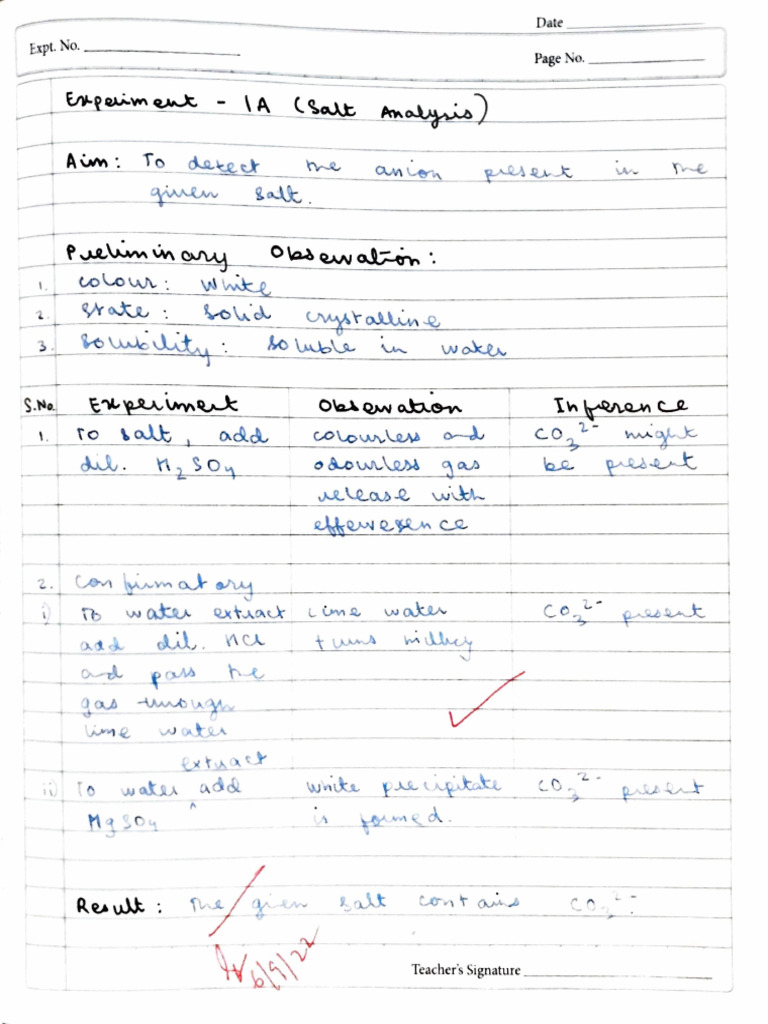 Date
Expt. No.
Page No.
Experiment - 1A (Salt Analysis)
Aim: To detect the anion present in the
given salt.
Preliminary Observation:
1. Colour: White
2. State: Solid crystalline
3. Solubility: Soluble in water
S.No. Experiment Observation Inference
1. To salt, add colourless and CO₃²⁻ might
dil. H₂SO₄ odourless gas be present
release with
effervesence
2. Confirmatory
i) To water extract Lime water CO₃²⁻ present
add dil. HCl turns milky
and pass the
gas through
lime water
extract
ii) To water ^ add White precipitate CO₃²⁻ present
MgSO₄ is formed.
Result: The given salt contains CO₃²⁻.
6/9/22
Teacher's Signature